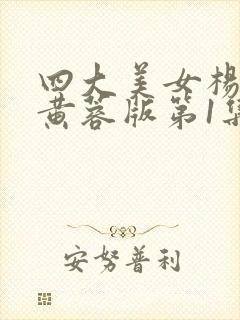 四大美女楊
黄蓉版第1集
安努普利